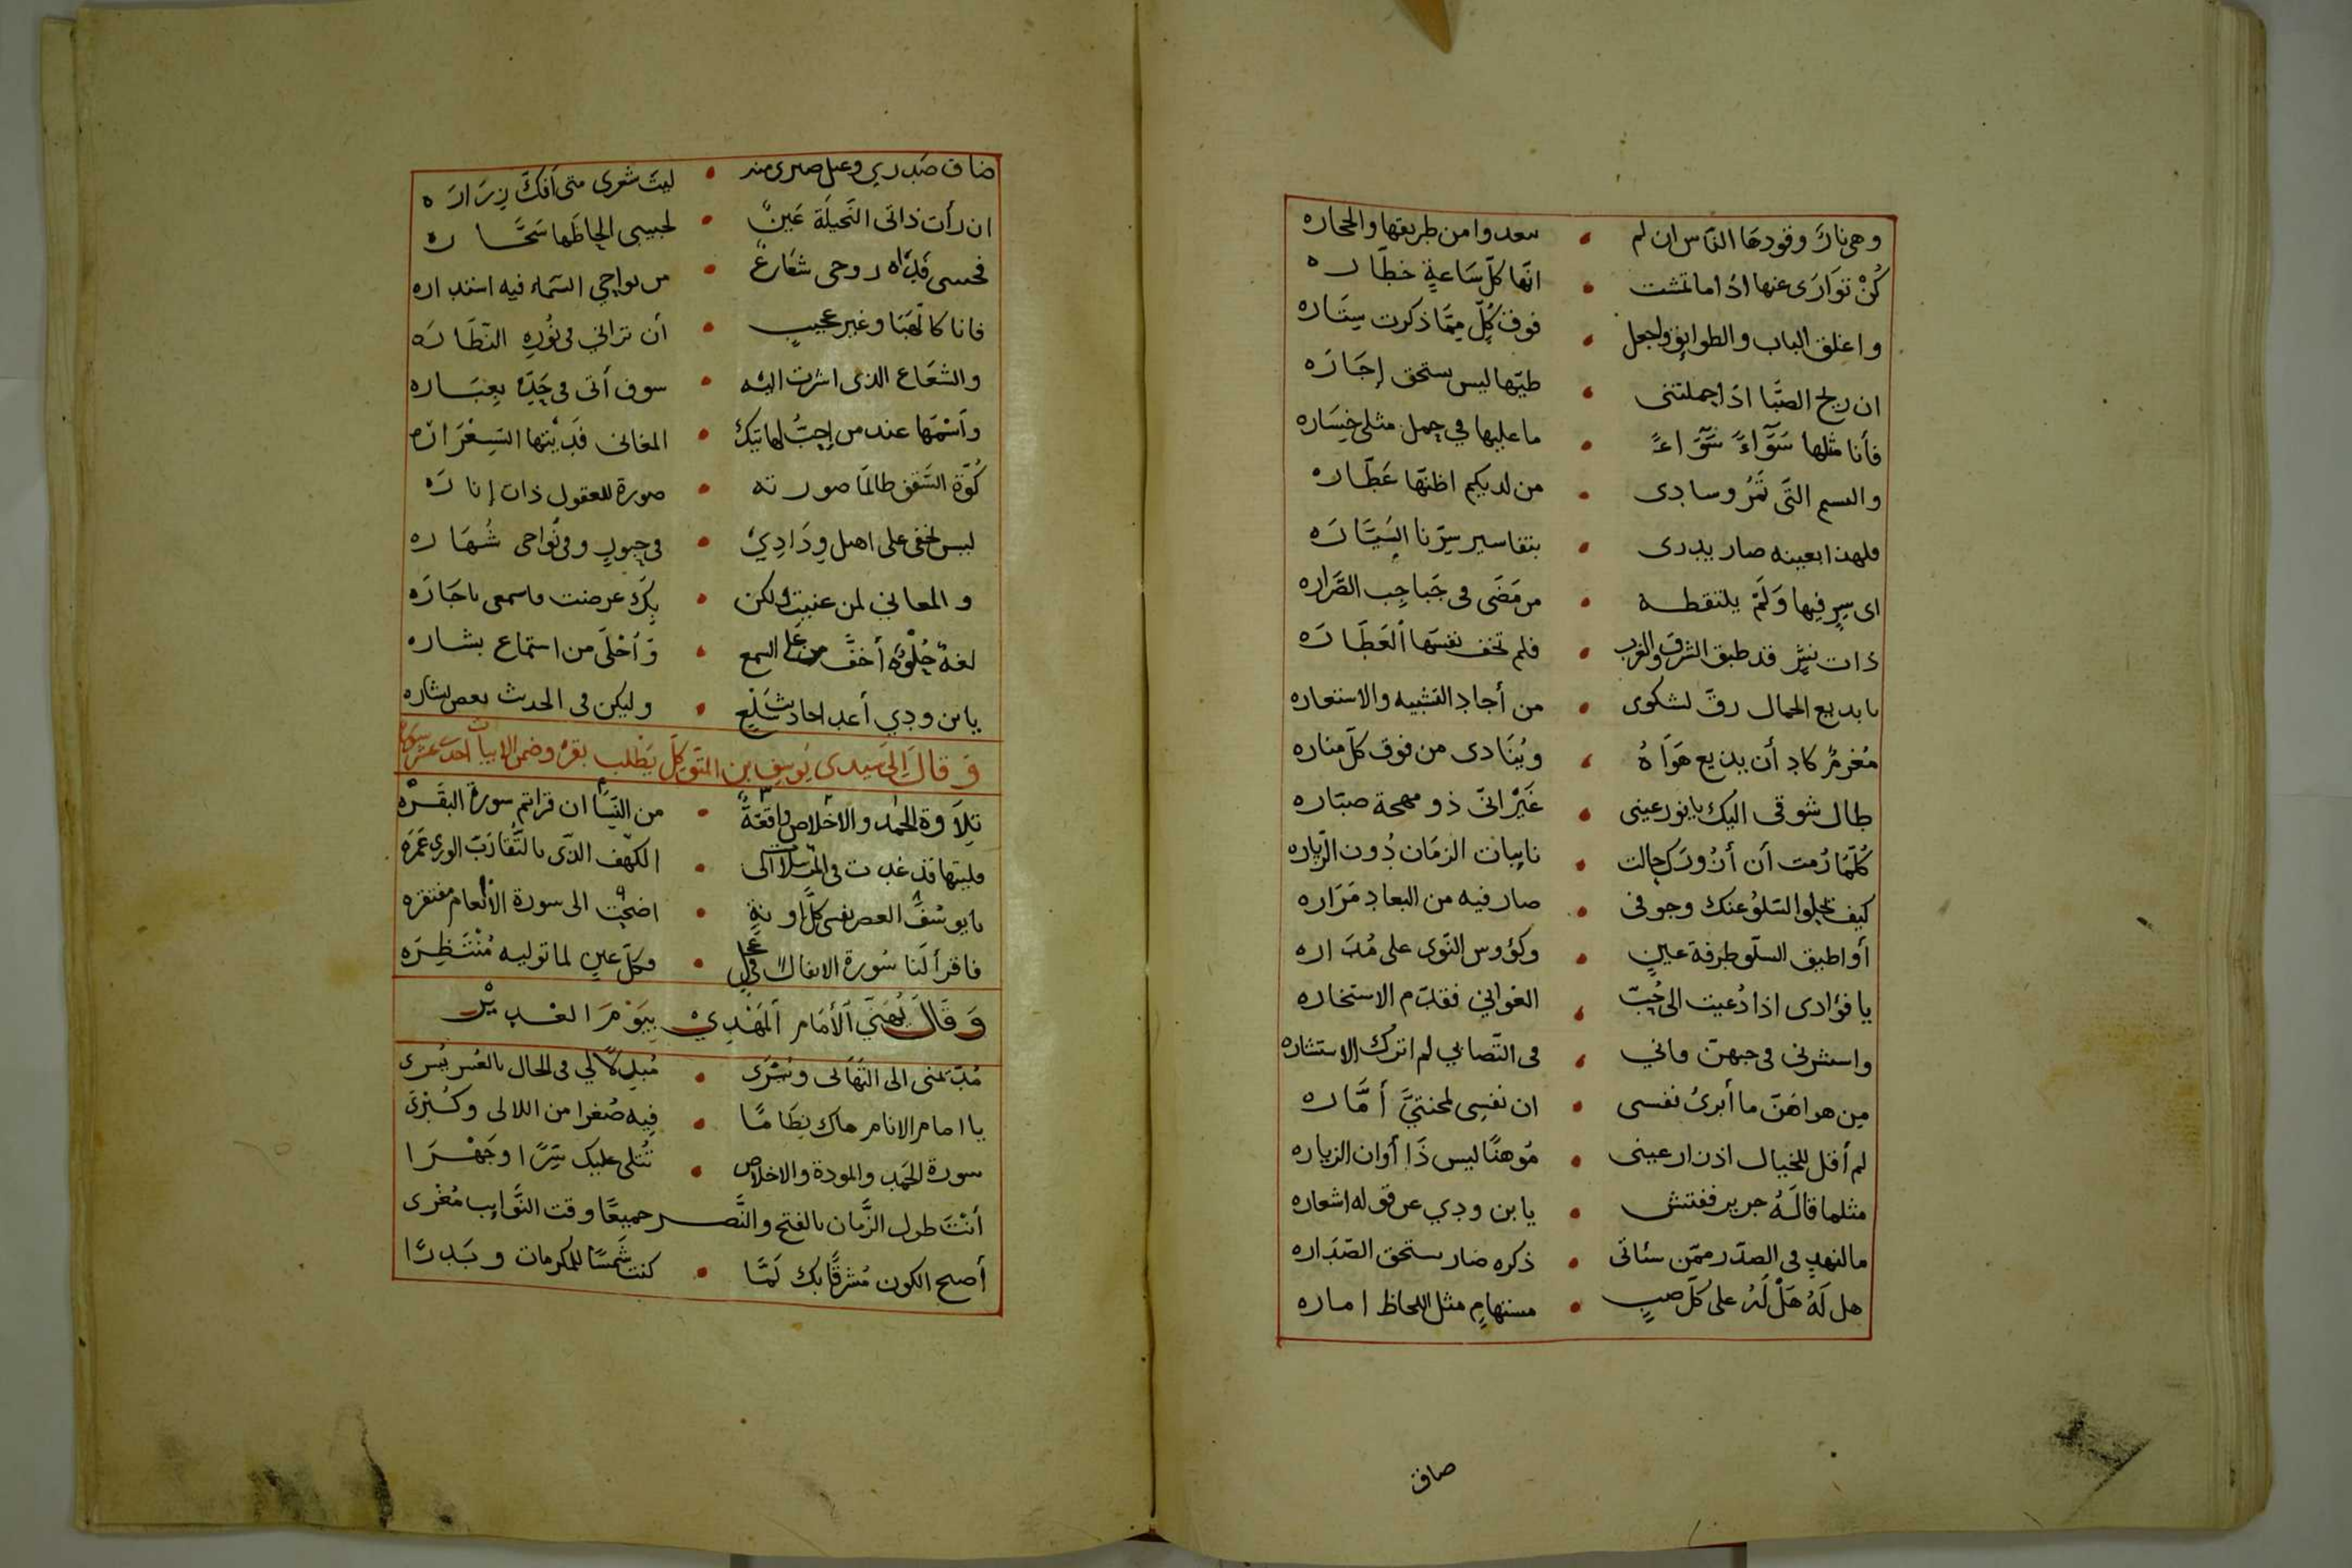 وهي نارٌ وقودها الناس ان لم • سعدوا من طريقها والحجاره
كُنْ تَوارَى عنها اذا ما تمشت • انّها كلّ سَاعةٍ خطّاره
واغلق الباب والطوايق واجعل • فوق كلٍّ ممّا ذكرت سِتَاره
ان ريح الصّبا اذا حملتنى • طيّها ليس يستحق إجَارَه
فأنا مثلها سَوَّاءً سَوَّاءً • ما عليها في حمل مثلى خِسَاره
والنسيم التى تَمُرُّ وسادى • من لديكم اظنّها عَطّاره
فلهذا بعينه صار يدرى • بتفاسير سِرّنا السَيَّارَه
اى سِرٍ فيها وَلَمْ يلتقطه • من مَضَى فى
ذات نشرٍ قد طبق الشرق والغرب • فلم تخف نفسَها العَطّارَه
يا بديع الجمال رقّ لشكوى • من أجاد التشبيه والاستعاره
مُغرمٌ كاد أن يذيع هَوَاهُ • ويُنَادى من فوق كلّ مناره
طال شوقى اليك يا نور عينى • غَيْرَ انّى ذو مهجة صبّاره
كُلَّمَا رُمت أن أزُورَك حالت • نايبات الزمَان دُون الزّياره
كيف يحلوا السّلوُ عنك وجوفى • صار فيه من البعاد مَرَاره
أو اطيق السلّو طرفة عينٍ • وكؤوس النّوى على مُدَاره
يا فؤادى اذا دُعيت الى حُبّ • الغوانى فقدّم الاستخاره
واستشرنى فى حبهنّ فانى • فى التّصابي لم اترك الاستشاره
مِن هواهنّ ما أبرئُ نفسى • ان نفسِى لمحنتىَّ أمَّاره
لم أقل للخيال اذ زار عينى • مُوهنًا ليس ذَا أوان الزياره
مثلما قالَهُ جرير ففتش • يا بن ودي عن قوله اشعاره
ما لنهدٍ فى الصدّر ممّن سبانى • ذكره صار يستحق الصّدَاره
هل لَهُ هَلْ لَهُ على كلّ صبٍ • مستهامٍ مثل اللحاظ اماره
ضاق
ضاق صَدري وعيل صبرى منه • ليتَ شعرى متى أفكّ زِرَارَه
ان رأت ذاتى النَحيلَة عَينٌ • لحبيبى الحاظها سَحّاره
فحسى روحى شعَارعٌ • من نواحي السّماء فيه استداره
فانا كالهَبَا وغير عجيبٍ • أن ترانى فى نُورِه النّظّارَه
والشعَاع الذى اشرت اليه • سوف أتى فى حَدّهِ بعِبَاره
وأسْمَها عند من احِبّ لهاتيك • المغانى فَدَيْتها
كُوّة السّقف طالمَا صورته • صورة للعقول ذات إنارَه
ليس تخفى على اهل وِدَادِي • فى وفى نواحى شُهَاره
والمعانى لمن عنيتَ ولكن • بِكَ عرضت فاسمعى يا جَارَه
لغةٌ حُلْوَةٌ أخفَّ من على السمع • وَأحْلَى من استماع بشاره
يا بن ودي أعد احاديث سَلْعٍ • وليكن فى الحديث بعض بشاره
وَقَالَ إلى سَيدى يُوسف بن المتوكّل يَطلب بقره وضمن الابيات احدى عشر سوره
تِلاوة الحمد والاخلاص واقعَةٌ • من النِسَا ان قراتم سورة البقَرَه
فليتها قد غدت فى المرسلات الى • الكهف الذى بالتُّقا رَبّ الورى عَمَرَه
يا يوسُفَ العصر نفسى كلَّ اونةٍ • اضحت الى سورة الانعام مفتقره
فاقرأ لَنا سُورة الانفال فى عجلٍ • فكلّ عينٍ لما توليه مُنْتَظِرَه
وَقَالَ يُهَنِّي اَلأمَام اَلمَهْدِيْ بِيَوْمَ الغديْر
مُدّ يمنى الى التهَانى ويُسْرَى • مُبدلاً لي فى الحال بالعُسر يُسرى
يا امام الانام هاك نِظَامًا • فِيه صُغرا من اللالى وكُبْرَى
سورة الحَمد والمودة والاخلاص • تُتلى عليك سِرًّا وجَهْرَا
أنتَ طول الزَّمان بالفتح والنَّصر جميعًا وقت النَّوايب مُغْرى
أصبح الكون مُشرقًا بك لَمّا • كنت شَمسًا للمكرمات وبَدرًا